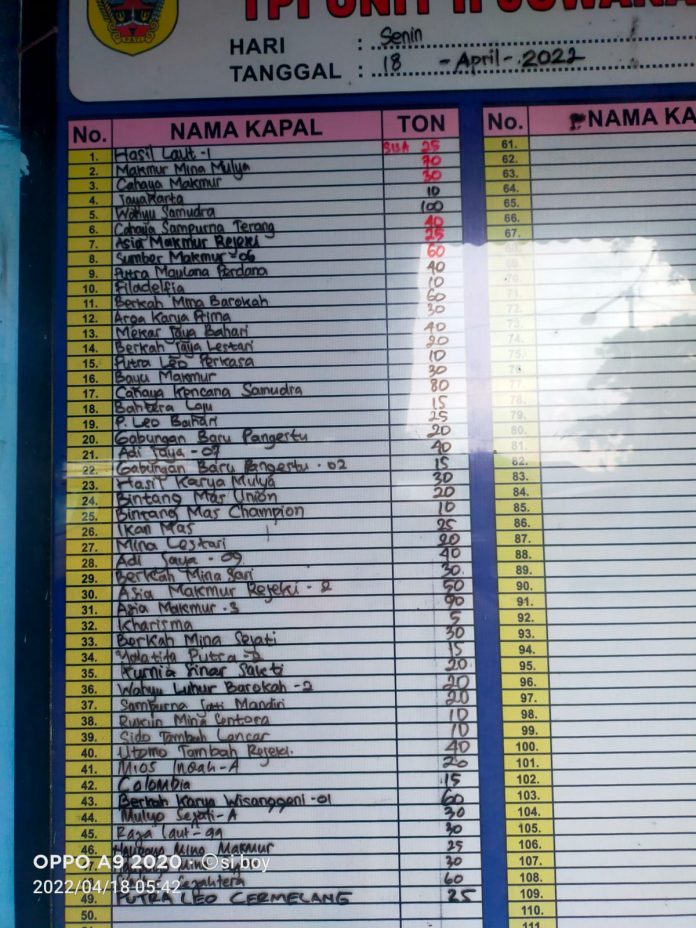 TPI UNIT II JUWANA
HARI : Senin
TANGGAL : 18 - April - 2022
No. NAMA KAPAL TON No. NAMA KA
1. Hasil Laut -1 SISA 25 61.
2. Makmur Mina Mulya 70 62.
3. Cahaya Makmur 30 63.
4. Jayakarta 10 64.
5. Wahyu Samudra 100 65.
6. Cahaya Sampurna Terang 40 66.
7. Asia Makmur Rejeki 25 67.
8. Sumber Makmur -06 60 68.
9. Putra Maulana Perdana 40
10. Filadelfia 10 71.
11. Berkah Mina Barokah 60 72.
12. Arga Karya Prima 30 73.
13. Mekar Jaya Bahari 40 74.
14. Berkah Jaya Lestari 20 75.
15. Putra Leo Perkasa 10 76.
16. Bayu Makmur 30 77.
17. Cahaya Kencana Samudra 80 78.
18. Bahtera Laju 15 79.
19. P. Leo Bahari 25 80.
20. Gabungan Baru Pangertu 20 81.
21. Adi Jaya - 07 40 82.
22. Gabungan Baru Pangertu - 02 15 83.
23. Hasil Karya Mulya 30 84.
24. Bintang Mas Union 20 85.
25. Bintang Mas Champion 10 86.
26. Ikan Mas 25 87.
27. Mina Lestari 20 88.
28. Adi Jaya - 09 40 89.
29. Berkah Mina Sari 30 90.
30. Asia Makmur Rejeki - 2 50 91.
31. Asia Makmur - 3 90 92.
32. Kharisma 5 93.
33. Berkah Mina Sejati 30 94.
34. Putra -2 15 95.
35. Kurnia Sinar Sakti 20 96.
36. Wahyu Luhur Barokah -2 20 97.
37. Sampurna Jati Mandiri 20 98.
38. Rukun Mina Sentosa 10 99.
39. Sido Tambah Lancar 10 100.
40. Utomo Tambah Rejeki. 40 101.
41. Mios Indah -A 20 102.
42. Colombia 15 103.
43. Berkah Karya Wisanggeni -01 60 104.
44. Mulyo Sejati -A 30 105.
45. Raja Laut -99 30 106.
46. Mino Makmur 25 107.
30 108.
60 109.
49. PUTRA LEO CERMELANG 25 110.
50. 111.
OPPO A9 2020 · ©si boy
2022/04/18 05:42